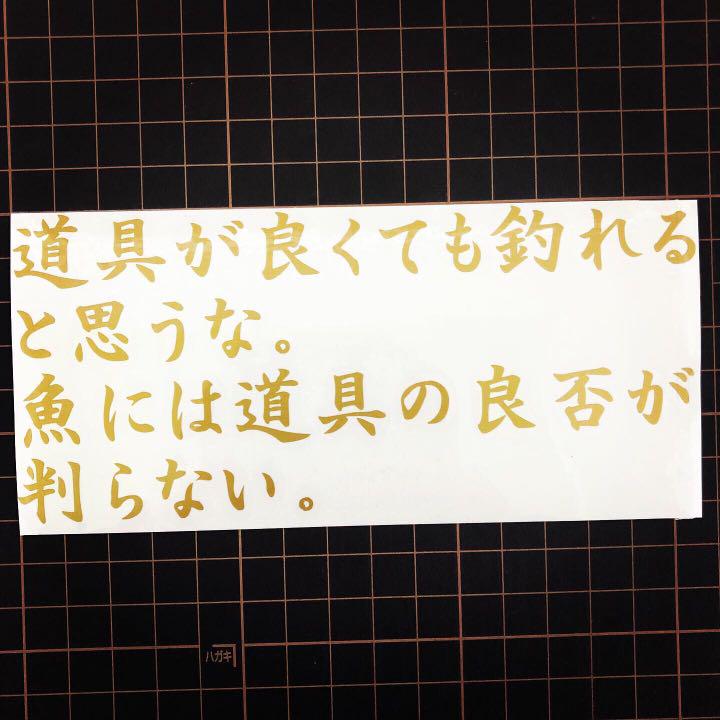 道具が良くても釣れる
と思うな。
魚には道具の良否が
判らない。
ハガキ